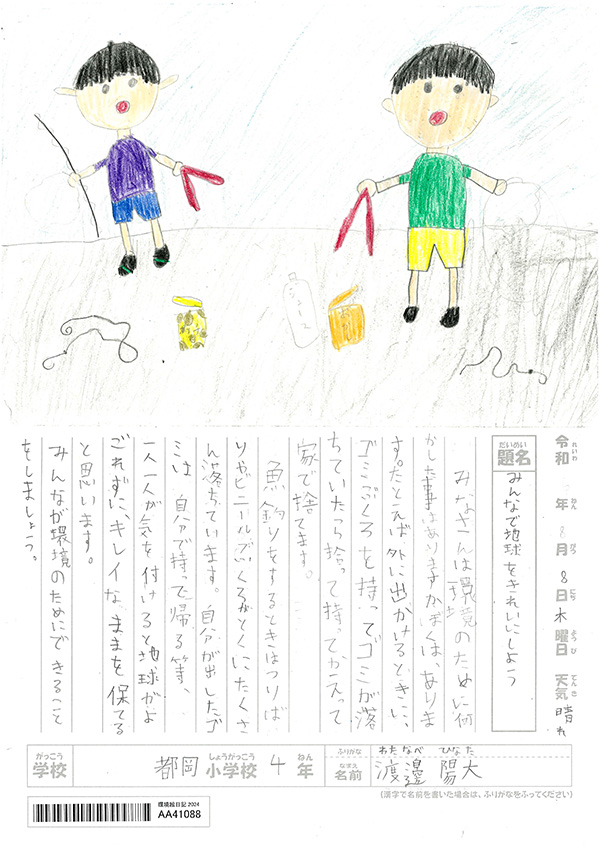 ジュース
令和 年 8月 8日 木曜日 天気 晴れ
れいわ ねん がつ にち ようび てんき
だいめい
題名
みんなで地球をきれいにしよう
みなさんは環境のために何
かした事はありますかぼくは、ありま
す。たとえば外に出かけるときに、
ゴミぶくろを持って、ゴミが落
ちていたら拾って持ってかえって
家で捨てます。
魚釣りをするときはつりば
りやビニールぶくろがとくにたくさ
ん落ちています。自分が出したゴ
ミは自分で持って帰る等、
一人一人が気を付けると地球がよ
ごれずに、キレイなままを保てる
と思います。
みんなが環境のためにできること
をしましょう。
がっこう しょうがっこう ねん
学校 都岡 小学校 4 年
ふりがな わたなべ ひなた
なまえ
名前 渡邊 陽大
(漢字で名前を書いた場合は、ふりがなをふってください)
環境絵日記 2024
AA41088